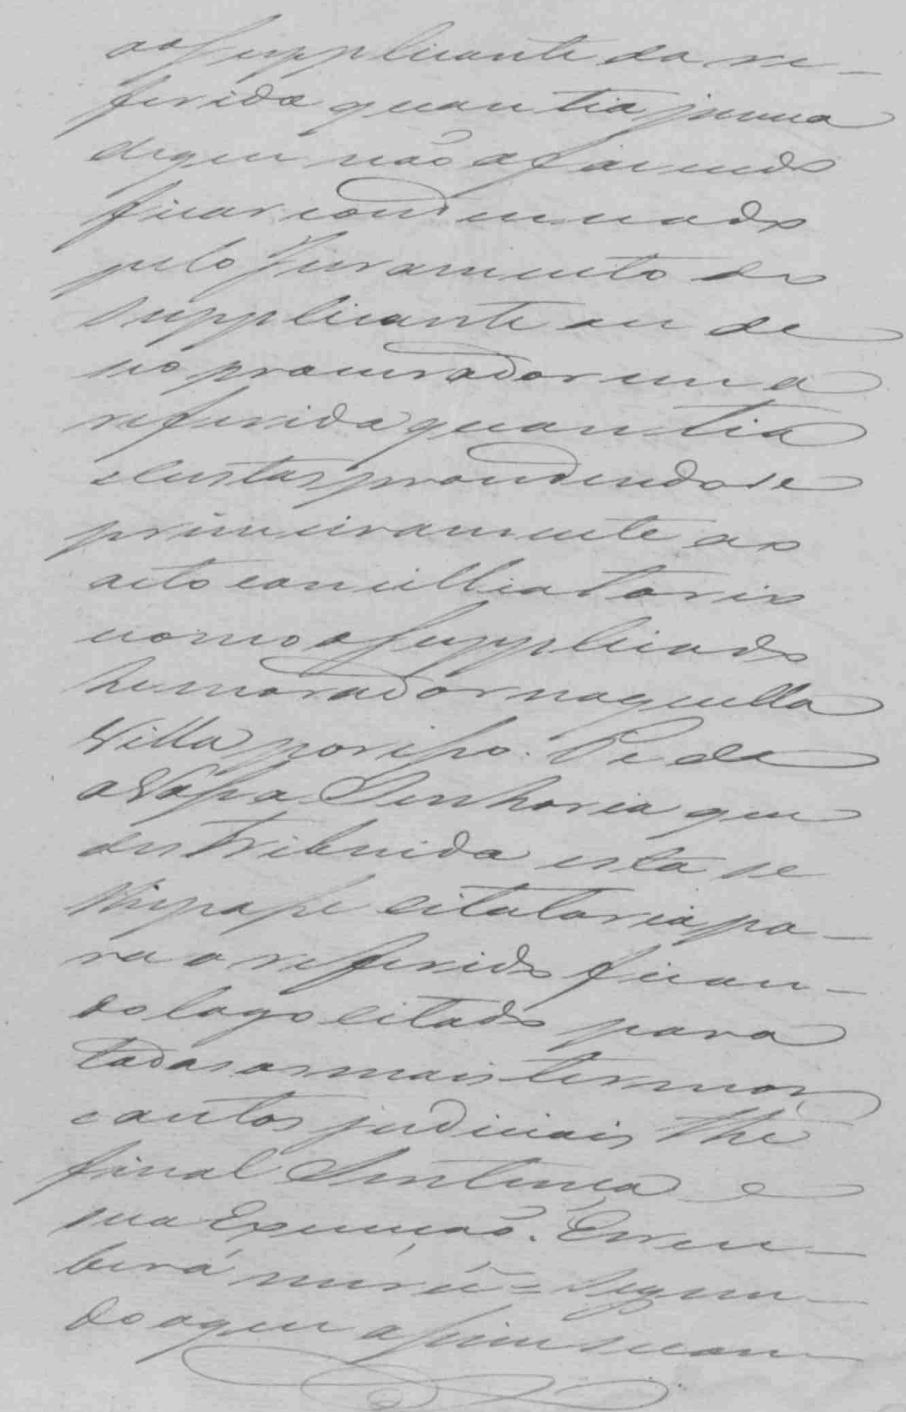 ao Supplicante da re-
ferida quantia, pena
de que não o fasendo
ficar condemnado
pelo juramento do
Supplicante ou de
seo procurador em a
referida quantia
e custas procedendo-se
primeiramente ao
acto concilliatorio
como o Supplicado
he morador naquella
Villa por isso. Pede
a Vossa Senhoria que
destribuida esta se
lhe passe citatoria pa-
ra o referido fican-
do logo citado para
todos os mais termos
e autos judiciais the
final Sentença e
sua Execução. E rece-
berá mercê = Segun-
do a que assim se con-